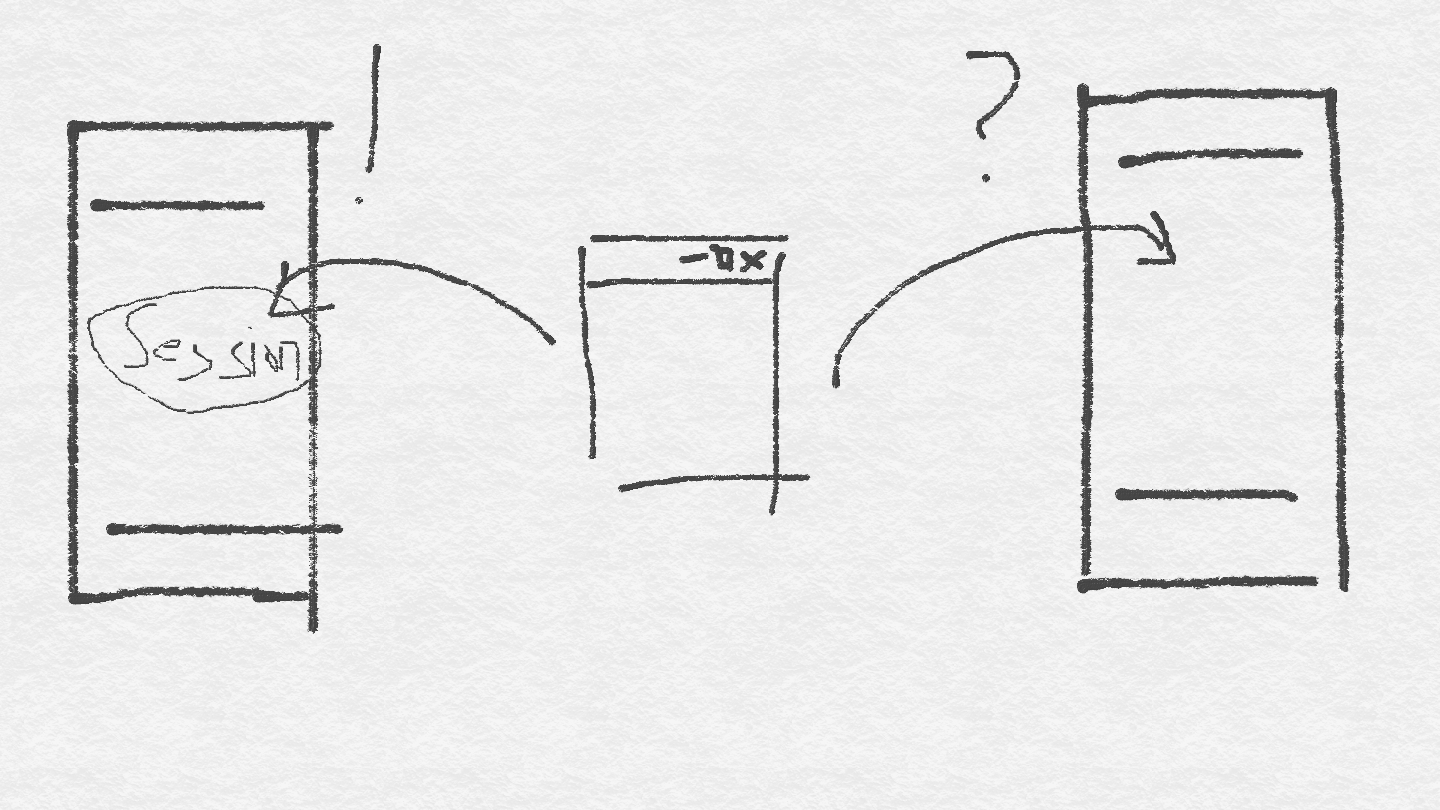 !
?
Session